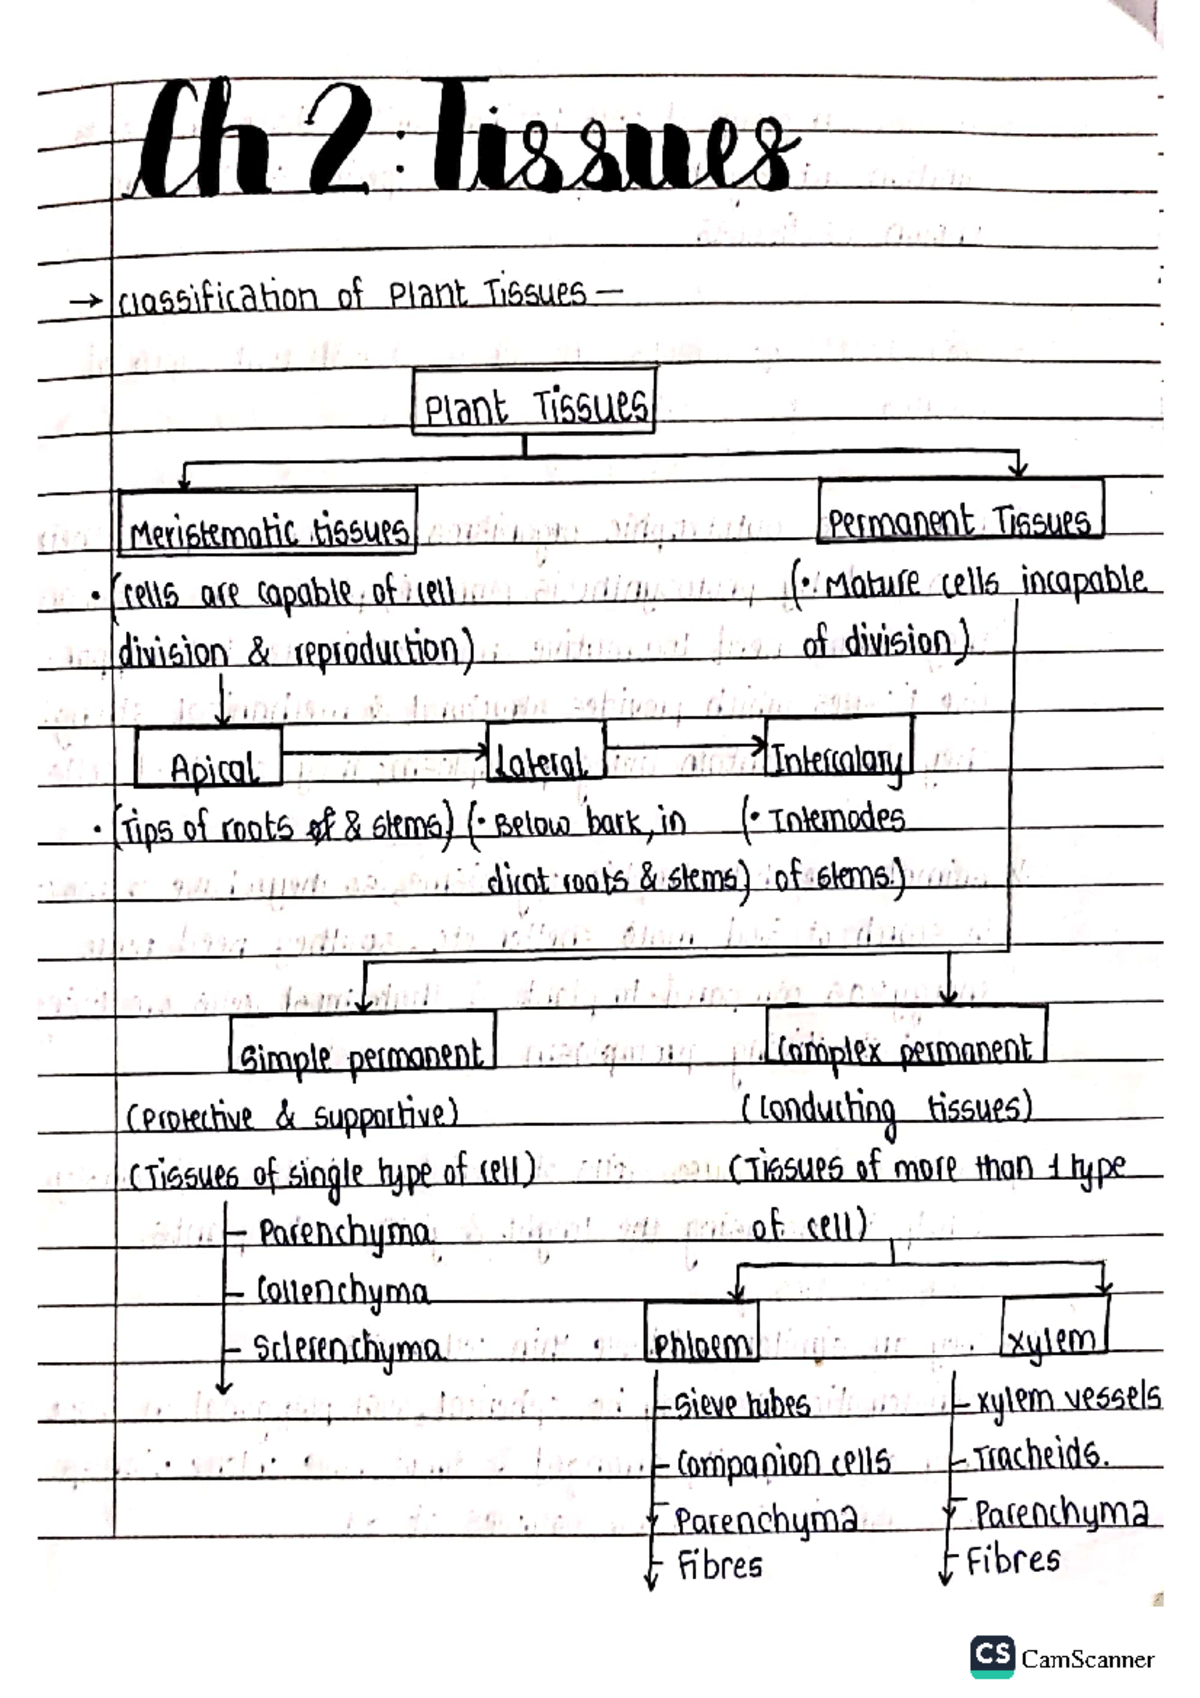 Ch 2: Tissues
→ Classification of Plant Tissues —
Plant Tissues
Meristematic tissues
Permanent Tissues
• (cells are capable of cell
division & reproduction)
(• Mature cells incapable
of division)
Apical
Lateral
Intercalary
• (Tips of roots & stems)
(• Below bark, in
dicot roots & stems)
(• Internodes
of stems.)
Simple permanent
Complex permanent
(Protective & supportive)
(Conducting tissues)
(Tissues of single type of cell)
(Tissues of more than 1 type
of cell)
Parenchyma
Collenchyma
Sclerenchyma
Phloem
Xylem
Sieve tubes
Companion cells
Parenchyma
Fibres
Xylem vessels
Tracheids.
Parenchyma
Fibres
CS CamScanner